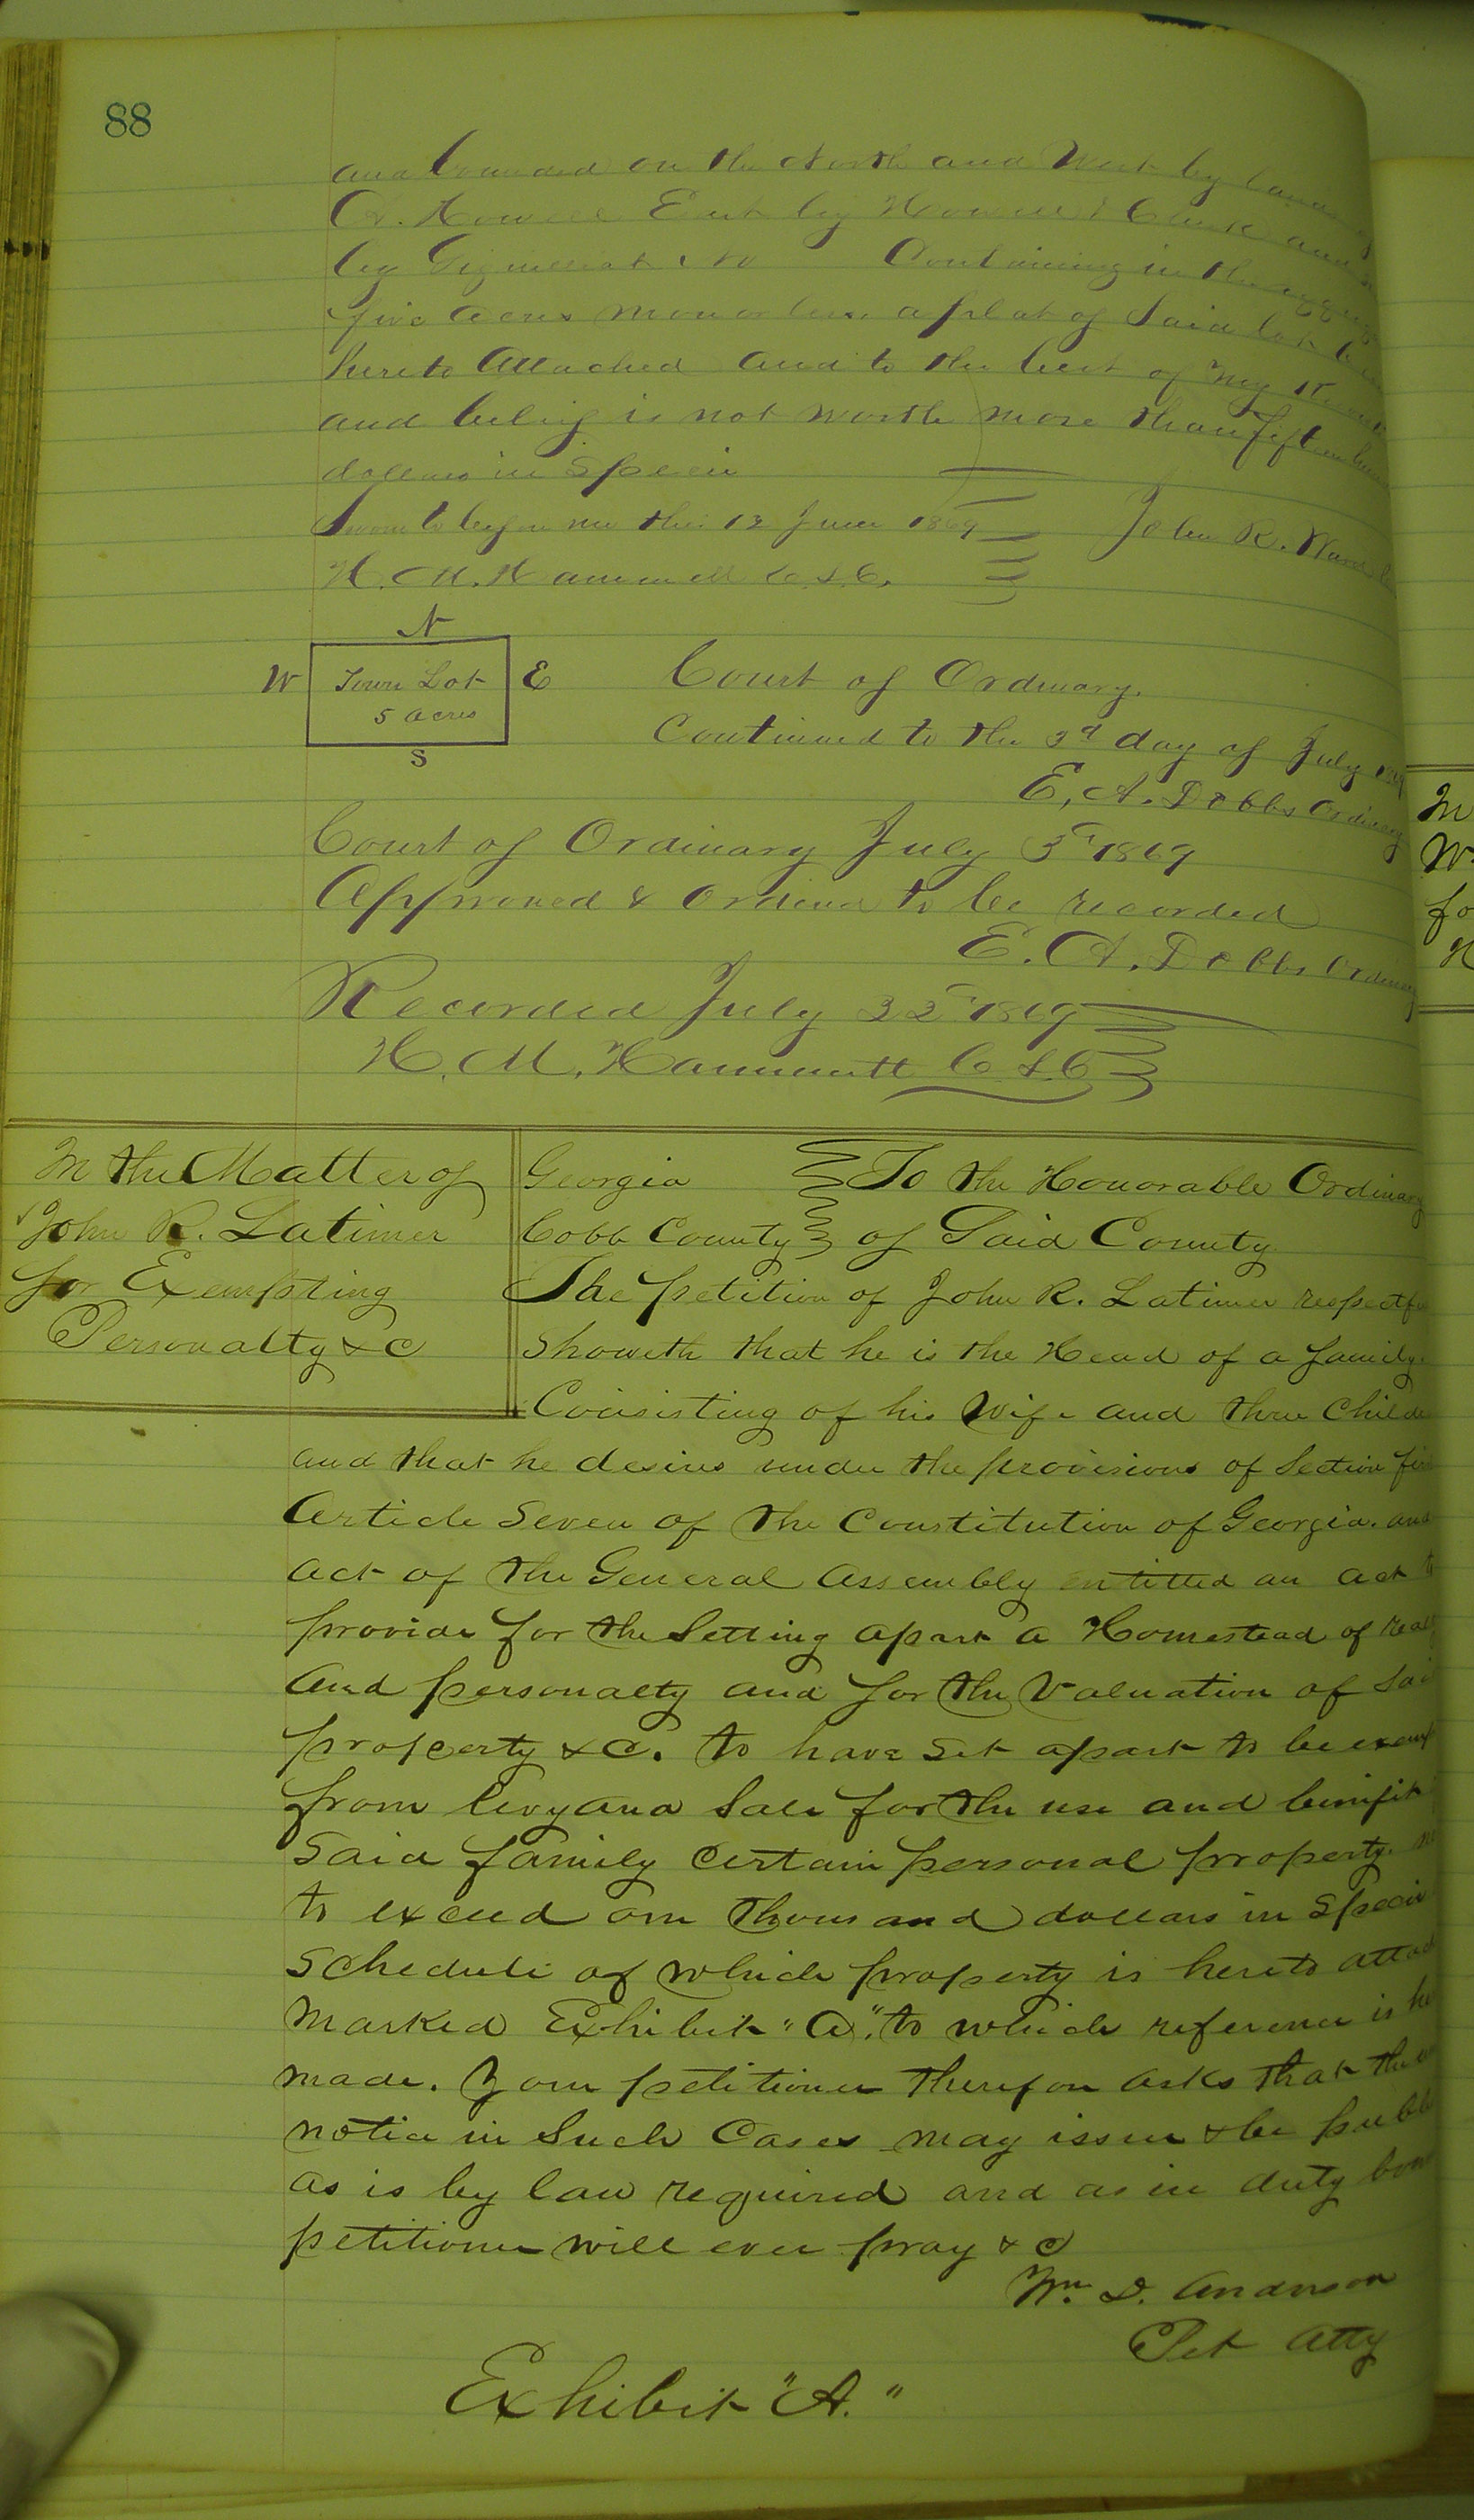 88
and bounded on the North and West by lands
Howell East by Howell & Clark and
by No Containing in the
five acres more or less, a plat of Said lot
hereto Attached and to the best of my
and belief is not worth more than fifteen
dollars in Specie
Sworn to before me this 12 June 1869
John R. Ward
H. M. Hammett C. S. C.
N
W Town Lot E
5 acres
S
Court of Ordinary.
Continued to the 3d day of July 1869
E, A. Dobbs Ordinary
Court of Ordinary July 3d 1869
Approved & Ordered to be recorded
E. A. Dobbs Ordinary
Recorded July 22d 1869
H. M. Hammett C. S. C
In the Matter of
John R. Latimer
for Exempting
Personalty & C
Georgia To the Honorable Ordinary
Cobb County of Said County
The petition of John R. Latimer
Showeth that he is the Head of a family.
Consisting of his Wife and three
and that he desires under the provisions of Section
Article Seven of the Constitution of Georgia. and
act of the General Assembly entitled an act to
provide for the Setting apart a Homestead of
And personalty and for the Valuation of
property & C. to have set apart to be
from levy and Sale for the use and benifit
Said family Certain personal property.
to exceed one thousand dollars in Specie
Schedule of which property is hereto
Marked Exhibit "A". to which reference is
made. Your petitioner therefore asks that the
notice in Such Cases may issue & be
as is by law required and as in duty
petitioner will ever pray & C
Wm. D. Anderson
Pet Atty
Exhibit "A."
In
W.
fo